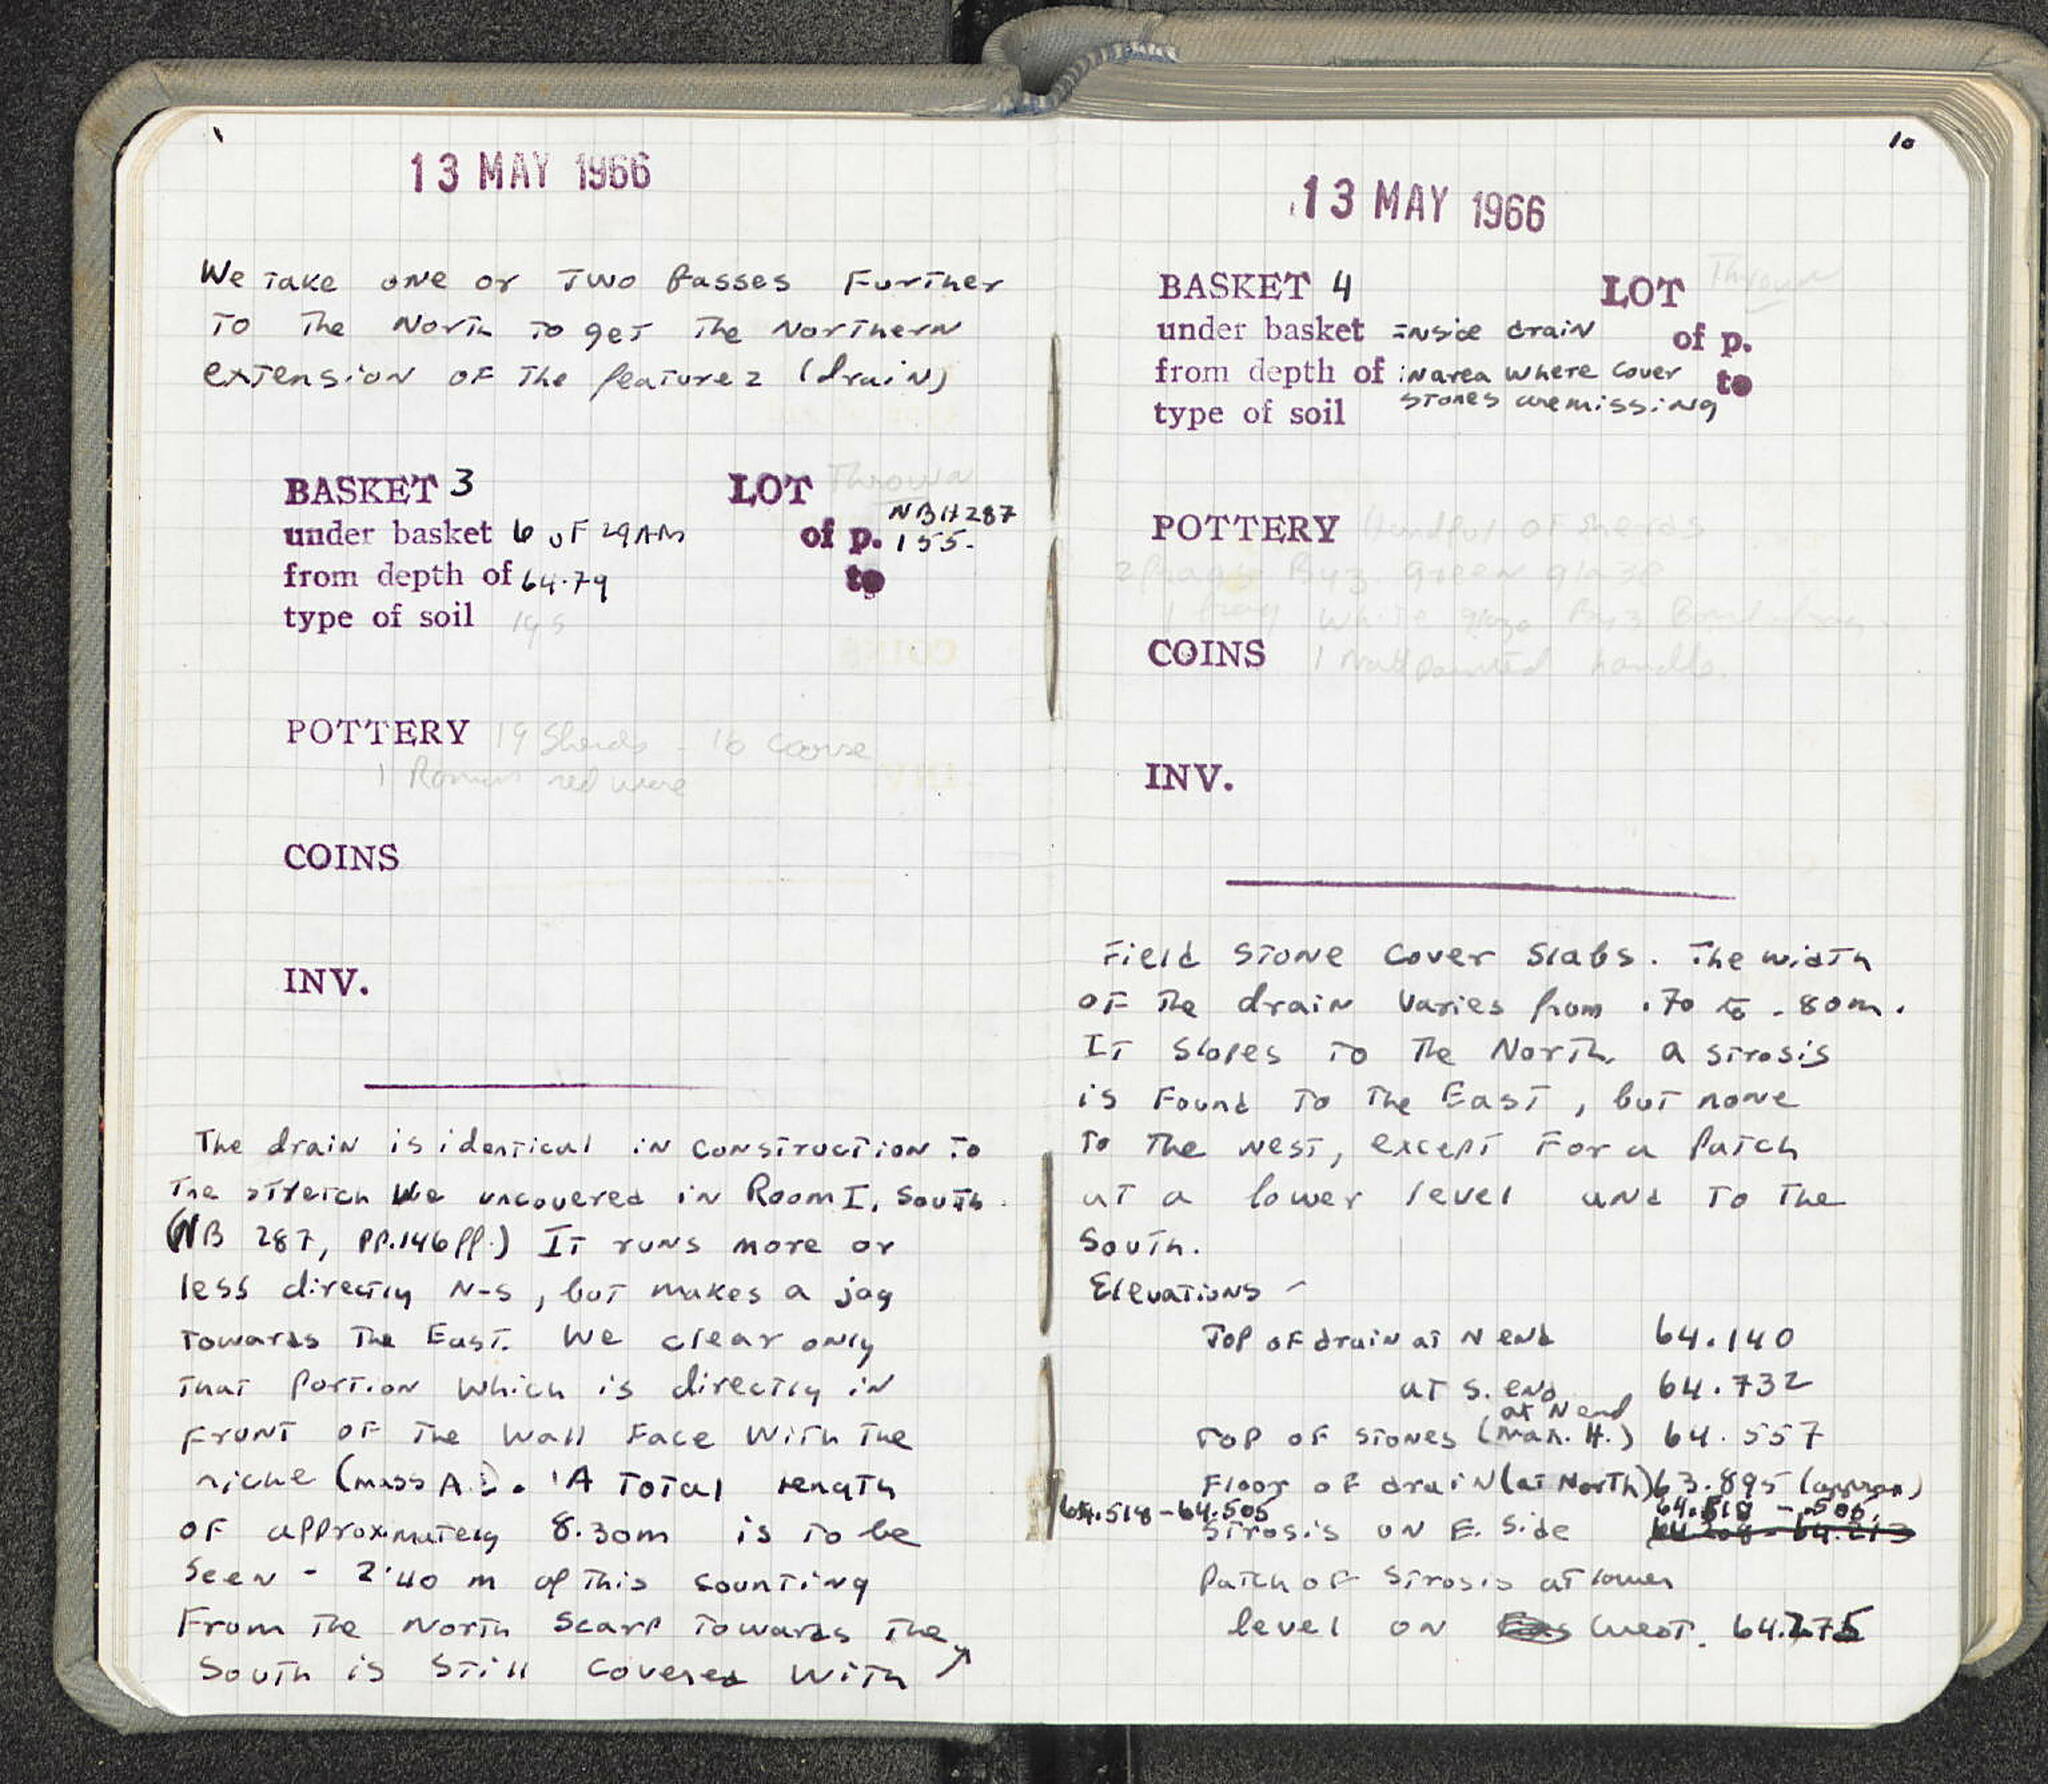 13 MAY 1966
We take one or two passes further
to the North to get the Northern
extension of the feature 2 (drain)
BASKET 3 LOT Thrown
under basket 6 of 29 APR of p. NB # 287 155.
from depth of 64.79 to
type of soil
POTTERY 19 Sherds - 16 coarse
1 Roman red ware
COINS
INV.
The drain is identical in construction to
the stretch we uncovered in Room I, South.
(NB 287, pp. 146 ff.) It runs more or
less directly N-S, but makes a jag
towards the East. We clear only
that portion which is directly in
front of the Wall Face with the
niche (mass A). A total length
of approximately 8.30m is to be
seen - 2.40 m of this counting
From the North Scarp towards the
South is still covered with
10
13 MAY 1966
BASKET 4 LOT Thrown
under basket inside drain of p.
from depth of in area where cover to
stones are missing
type of soil
POTTERY Handful of sherds
2 frags Byz green glaze
1 frag white glaze Byz
COINS
1 Matt painted handle.
INV.
Field stone cover slabs. The width
of the drain varies from .70 to .80m.
It slopes to the North. a strosis
is found to the East, but none
to the west, except for a patch
at a lower level and to the
South.
Elevations -
Top of drain at N end 64.140
at S. end 64.732
at N end
Top of stones (max. H.) 64.557
Floor of drain (at North) 63.895 (approx)
64.518 - 64.505 64.518 - .505
Strosis on E. Side
patch of strosis at lower
level on West. 64.275